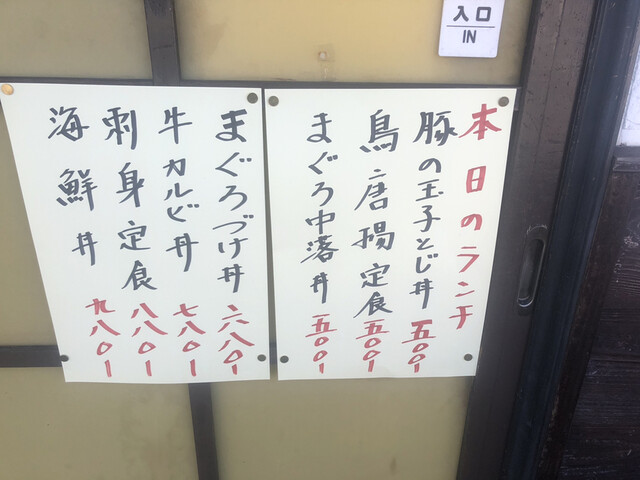 入口
IN
本日のランチ
豚の玉子とじ丼 五〇〇
鳥唐揚定食 五〇〇
まぐろ中落丼 五〇〇
まぐろづけ丼 六八〇
牛カルビ丼 七八〇
刺身定食 八八〇
海鮮丼 九八〇